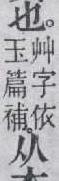 也。
艸字依
玉篇補。
从